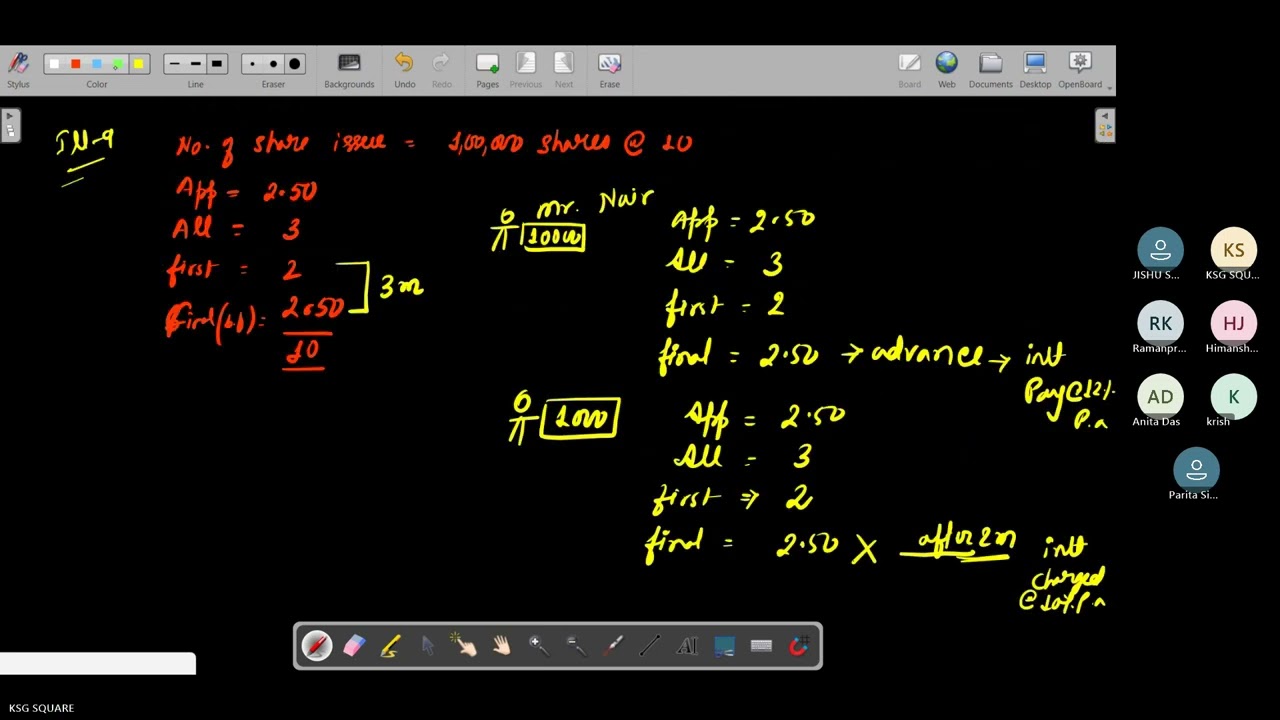 Stylus Color Line Eraser Backgrounds Undo Redo Pages Previous Next Erase Board Web Documents Desktop OpenBoard
No. of share issue = 1,00,000 shares @ 10
App = 2.50
All = 3
first = 2
3m
final(b.f) = 2.50
10
Mr. Nair
10000
App = 2.50
All = 3
first = 2
final = 2.50 → advance → intt
Pay@12%
P.a
1000
App = 2.50
All = 3
first ⇒ 2
final = 2.50 X after 2m intt
charged
@10% P.a
JISHU S...
KS
KSG SQU...
RK
Ramanpr...
HJ
Himansh...
AD
Anita Das
K
krish
Parita Si...
KSG SQUARE